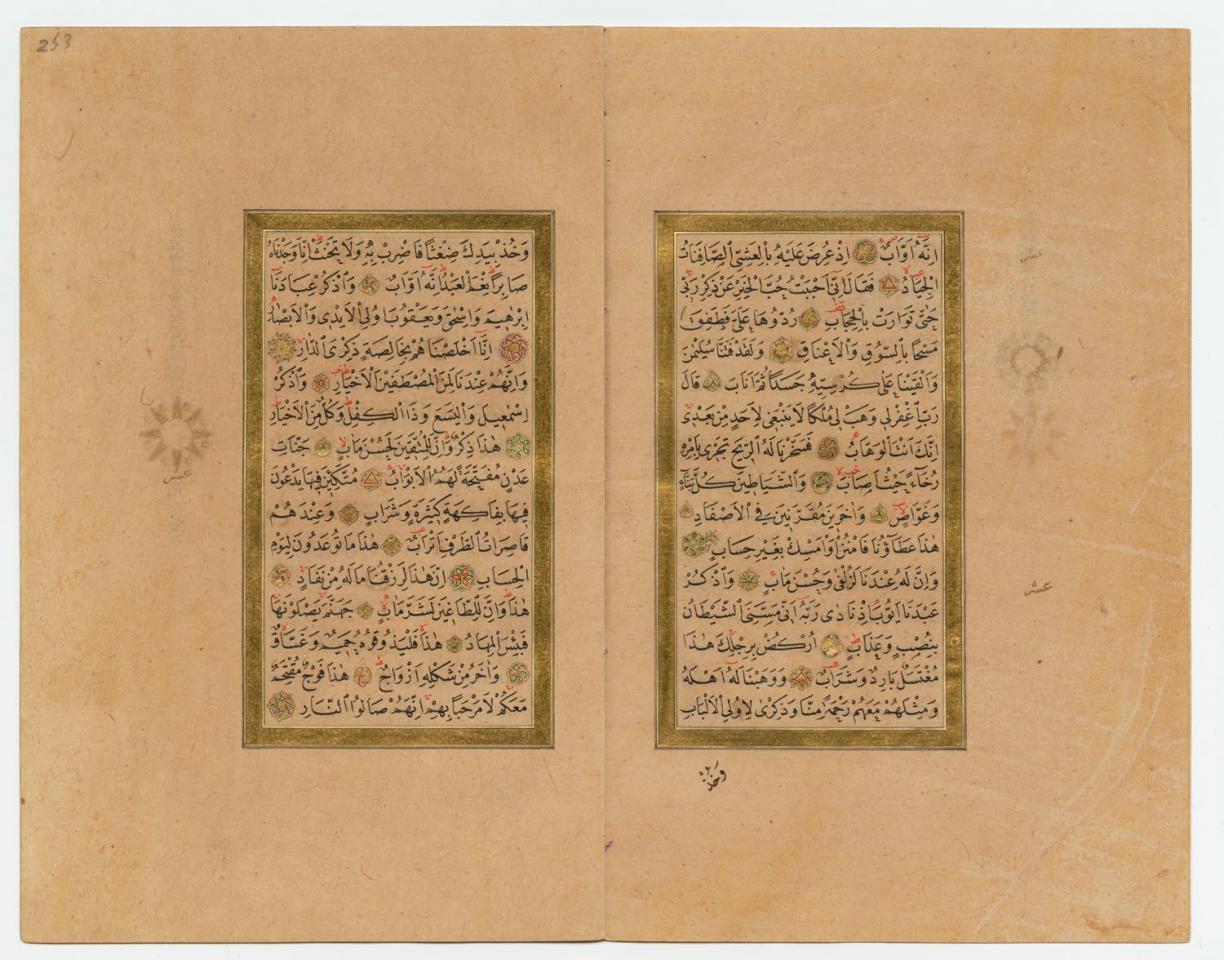 اِنَّهُ اَوَّابٌ اِذْ عُرِضَ عَلَيْهِ بِالْعَشِىِّ الصَّافِنَاتُ
الْجِيَادُ فَقَالَ اِنّٖى اَحْبَبْتُ حُبَّ الْخَيْرِ عَنْ ذِكْرِ رَبّٖى
حَتّٰى تَوَارَتْ بِالْحِجَابِ رُدُّوهَا عَلَىَّ فَطَفِقَ
مَسْحًا بِالسُّوقِ وَالْاَعْنَاقِ وَلَقَدْ فَتَنَّا سُلَيْمٰنَ
وَاَلْقَيْنَا عَلٰى كُرْسِيِّهٖ جَسَدًا ثُمَّ اَنَابَ قَالَ
رَبِّ اغْفِرْ لٖى وَهَبْ لٖى مُلْكًا لَا يَنْبَغٖى لِاَحَدٍ مِنْ بَعْدٖى
اِنَّكَ اَنْتَ الْوَهَّابُ فَسَخَّرْنَا لَهُ الرّٖيحَ تَجْرٖى بِاَمْرِهٖ
رُخَاءً حَيْثُ اَصَابَ وَالشَّيَاطٖينَ كُلَّ بَنَّاءٍ
وَغَوَّاصٍ وَاٰخَرٖينَ مُقَرَّنٖينَ فِى الْاَصْفَادِ
هٰذَا عَطَاؤُنَا فَامْنُنْ اَوْ اَمْسِكْ بِغَيْرِ حِسَابٍ
وَاِنَّ لَهُ عِنْدَنَا لَزُلْفٰى وَحُسْنَ مَاٰبٍ وَاذْكُرْ
عَبْدَنَا اَيُّوبَ اِذْ نَادٰى رَبَّهُ اَنّٖى مَسَّنِىَ الشَّيْطَانُ
بِنُصْبٍ وَعَذَابٍ اُرْكُضْ بِرِجْلِكَ هٰذَا
مُغْتَسَلٌ بَارِدٌ وَشَرَابٌ وَوَهَبْنَا لَهُ اَهْلَهُ
وَمِثْلَهُمْ مَعَهُمْ رَحْمَةً مِنَّا وَذِكْرٰى لِاُولِى الْاَلْبَابِ
وَخُذْ
عشر
253
وَخُذْ بِيَدِكَ ضِغْثًا فَاضْرِبْ بِهٖ وَلَا تَحْنَثْ اِنَّا وَجَدْنَاهُ
صَابِرًا نِعْمَ الْعَبْدُ اِنَّهُ اَوَّابٌ وَاذْكُرْ عِبَادَنَا
اِبْرٰهٖيمَ وَاِسْحٰقَ وَيَعْقُوبَ اُولِى الْاَيْدٖى وَالْاَبْصَارِ
اِنَّا اَخْلَصْنَاهُمْ بِخَالِصَةٍ ذِكْرَى الدَّارِ
وَاِنَّهُمْ عِنْدَنَا لَمِنَ الْمُصْطَفَيْنَ الْاَخْيَارِ وَاذْكُرْ
اِسْمٰعٖيلَ وَالْيَسَعَ وَذَا الْكِفْلِ وَكُلٌّ مِنَ الْاَخْيَارِ
هٰذَا ذِكْرٌ وَاِنَّ لِلْمُتَّقٖينَ لَحُسْنَ مَاٰبٍ جَنَّاتِ
عَدْنٍ مُفَتَّحَةً لَهُمُ الْاَبْوَابُ مُتَّكِـٖٔينَ فٖيهَا يَدْعُونَ
فٖيهَا بِفَاكِهَةٍ كَثٖيرَةٍ وَشَرَابٍ وَعِنْدَهُمْ
قَاصِرَاتُ الطَّرْفِ اَتْرَابٌ هٰذَا مَا تُوعَدُونَ لِيَوْمِ
الْحِسَابِ اِنَّ هٰذَا لَرِزْقُنَا مَا لَهُ مِنْ نَفَادٍ
هٰذَا وَاِنَّ لِلطَّاغٖينَ لَشَرَّ مَاٰبٍ جَهَنَّمَ يَصْلَوْنَهَا
فَبِئْسَ الْمِهَادُ هٰذَا فَلْيَذُوقُوهُ حَمٖيمٌ وَغَسَّاقٌ
وَاٰخَرُ مِنْ شَكْلِهٖ اَزْوَاجٌ هٰذَا فَوْجٌ مُقْتَحِمٌ
مَعَكُمْ لَا مَرْحَبًا بِهِمْ اِنَّهُمْ صَالُوا النَّارِ
عشر